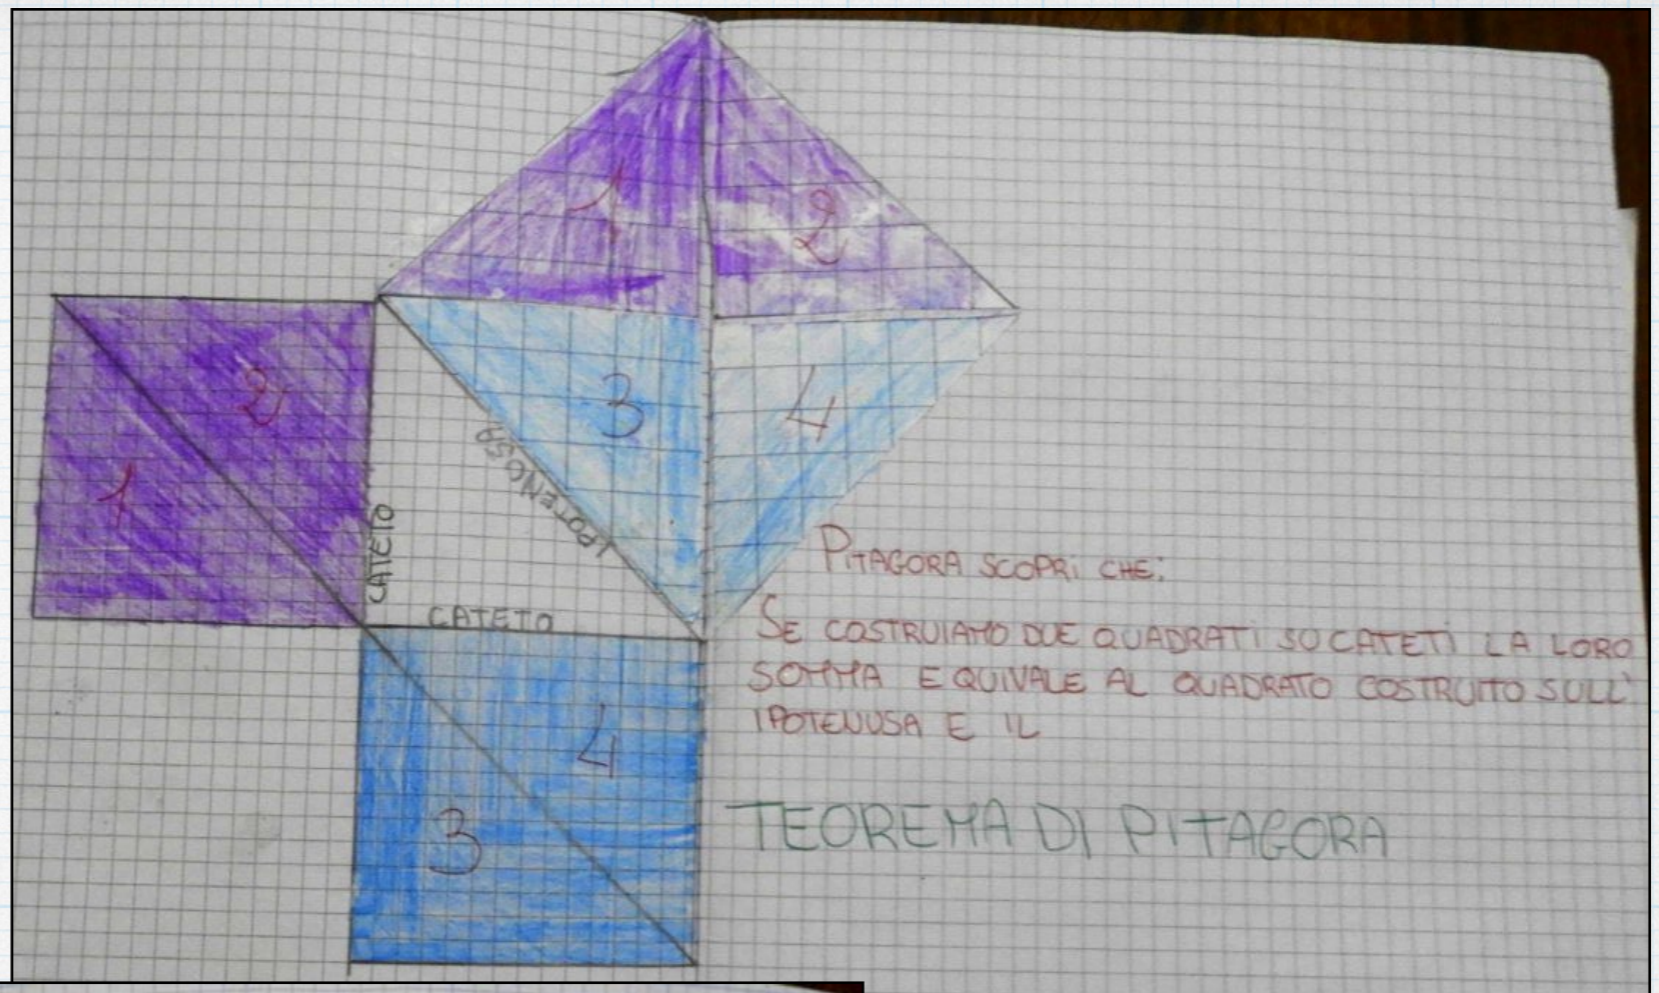 1
2
2
1
3
4
IPOTENOSA
CATETO
CATETO
PITAGORA SCOPRì CHE:
SE COSTRUIAMO DUE QUADRATI SU CATETI LA LORO
SOMMA EQUIVALE AL QUADRATO COSTRUITO SULL'
IPOTENUSA E IL
4
3
TEOREMA DI PITAGORA